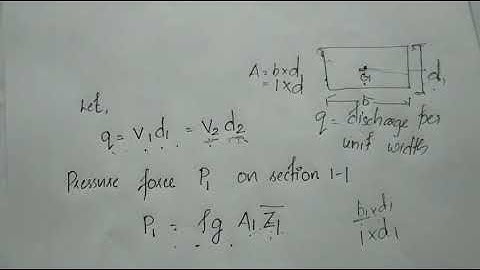 A = b×d
= 1×d
G1
d1
b
Let,
q = V1 d1 = V2 d2
q = discharge per
unit width
Pressure force P1 on section 1-1
P1 = ρg A1 Z̅1
b1×d1
1×d1